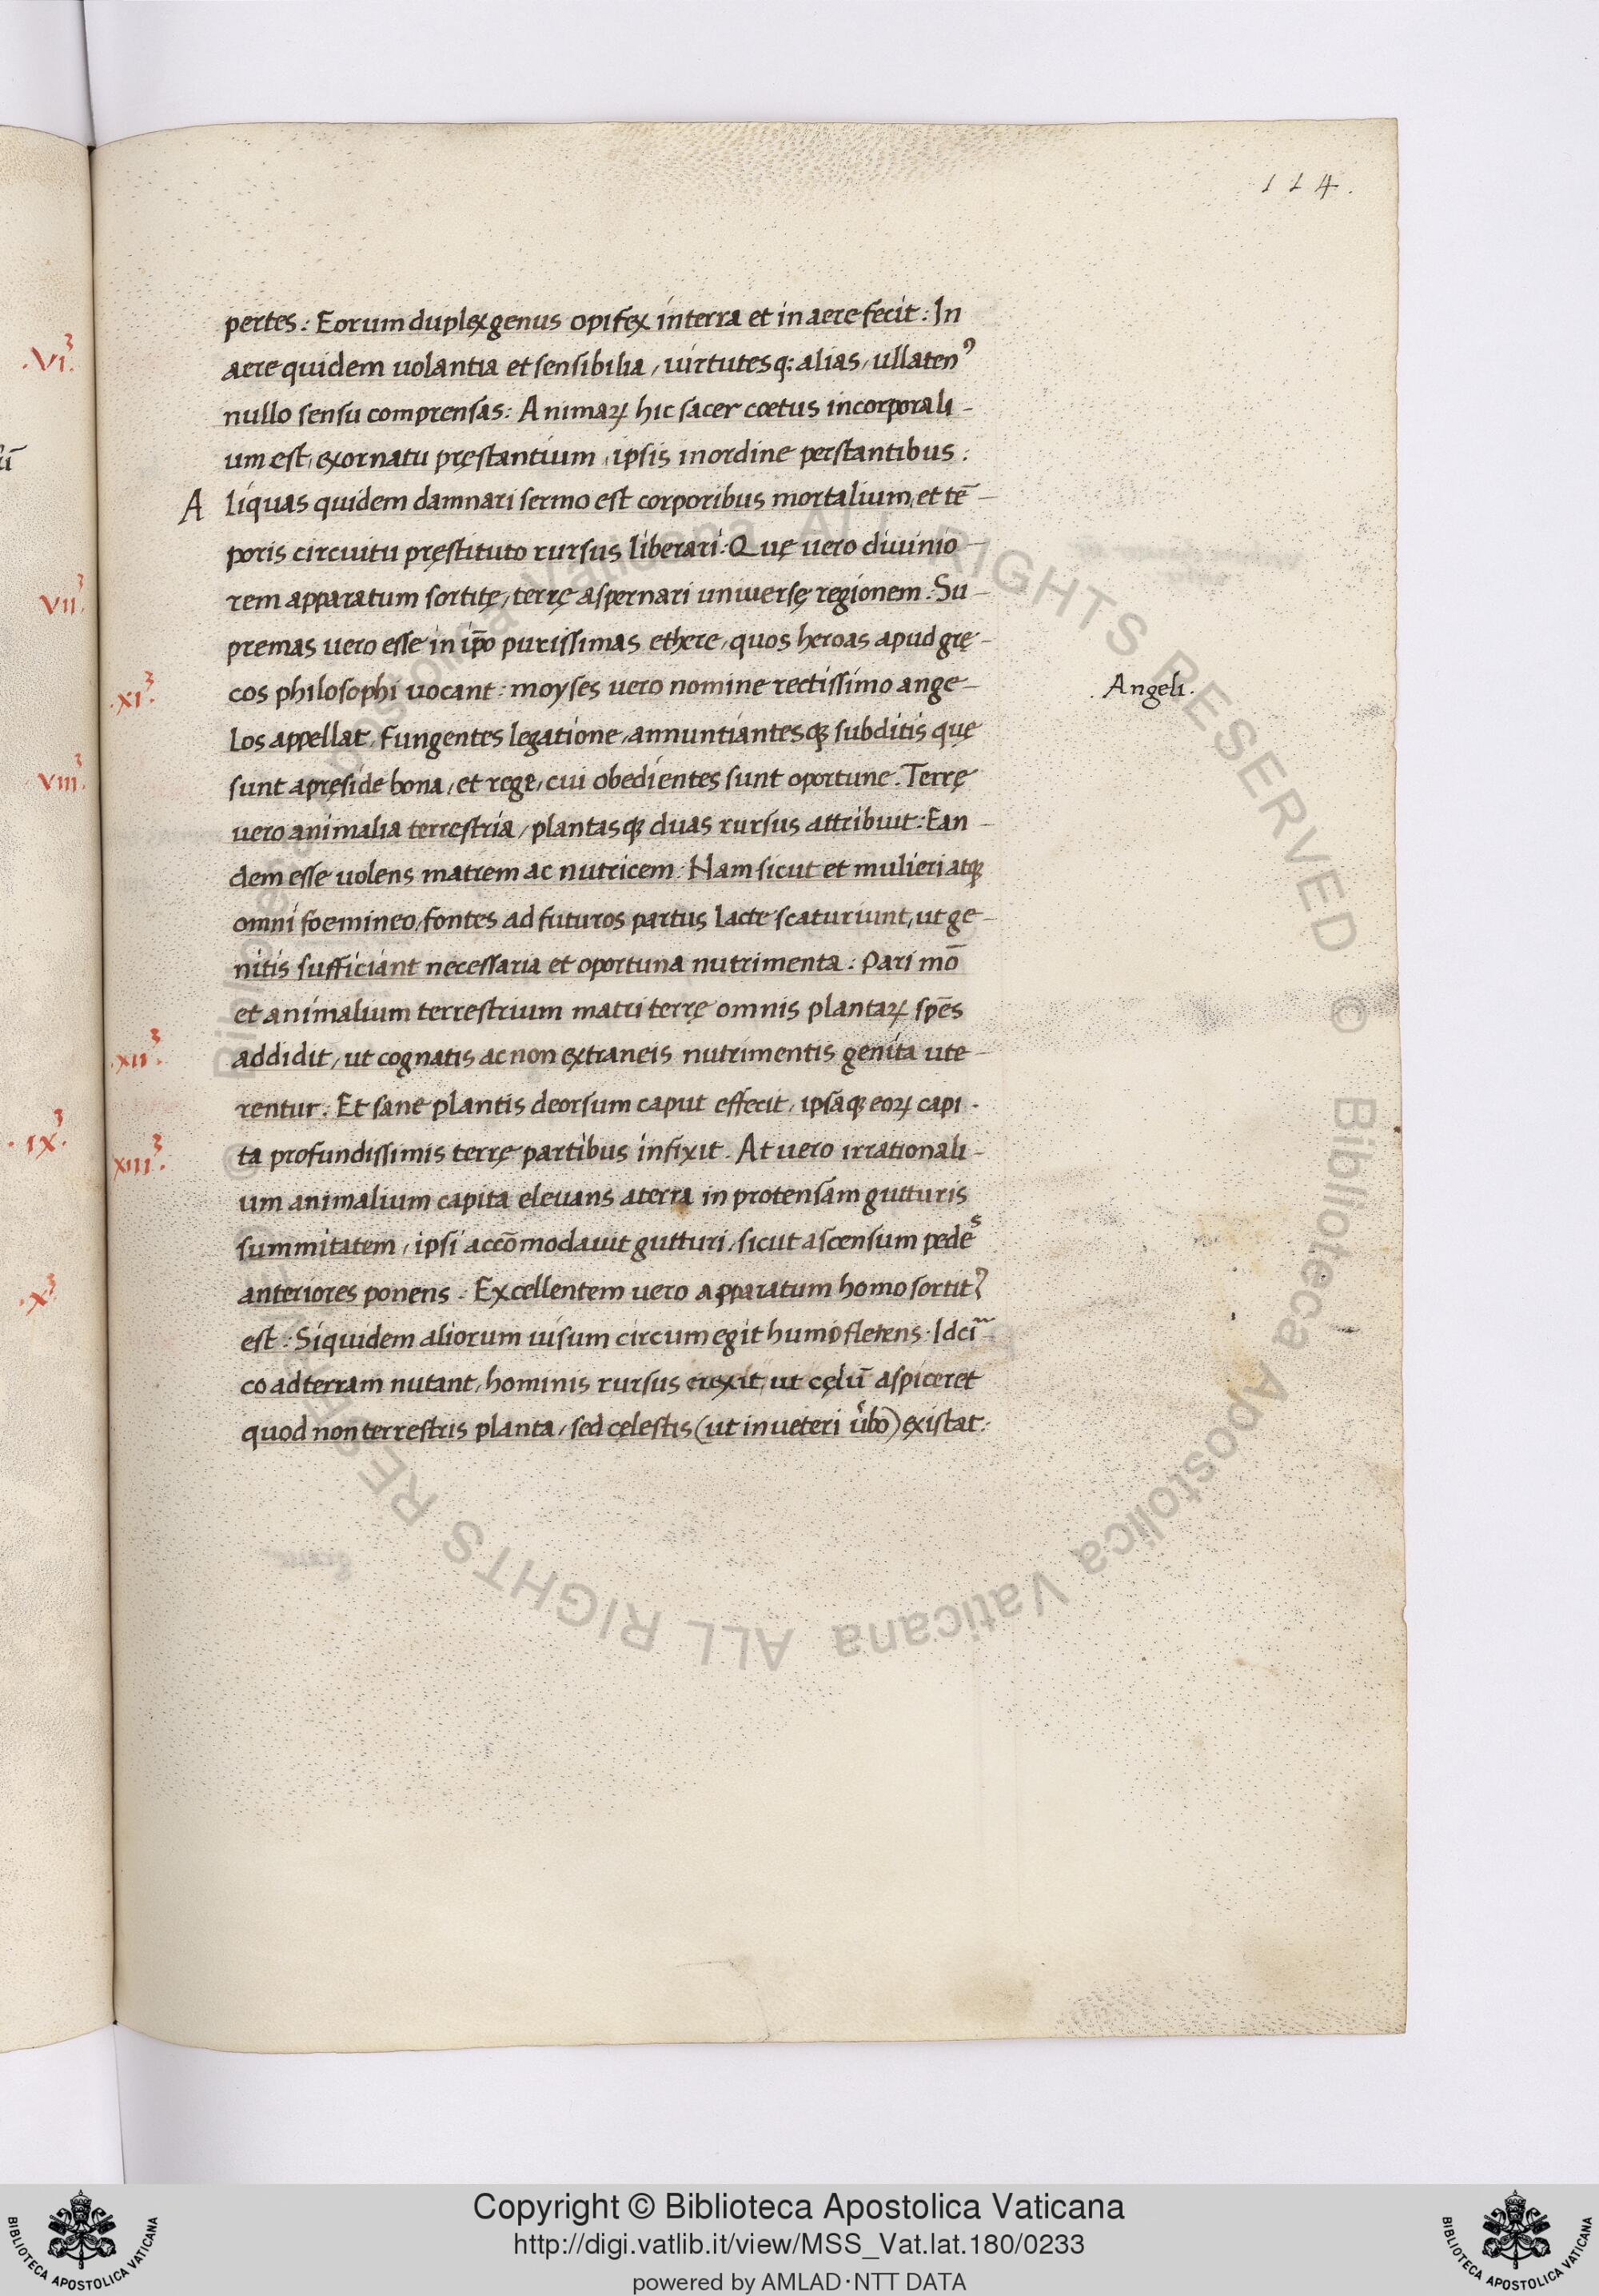 114.
pertes : Eorum duplex genus opifex in terra et in aere fecit : In
aere quidem uolantia et sensibilia, uirtutesq; alias, ullaten⁹
nullo sensu comprensas : Animaꝝ hic sacer cœtus incorporali-
um est, exornatu pręstantium, ipsis in ordine perstantibus :
Aliquas quidem damnari sermo est corporibus mortalium, et tē-
poris circuitu pręstituto rursus liberari : Quę uero diuinio-
rem apparatum sortitę, terrę aspernari uniuersę regionem. Su-
premas uero esse in ip̄o purissimas ethere, quos heroas apud grę-
cos philosophi uocant : moyses uero nomine rectissimo ange-
los appellat, fungentes legatione, annuntiantesqꝫ subditis quę
sunt a pręside bona, et rege, cui obedientes sunt oportune. Terrę
uero animalia terrestria, plantasqꝫ duas rursus attribuit : Ean-
dem esse uolens matrem ac nutricem. Nam sicut et mulieri atqꝫ
omni foemineo, fontes ad futuros partus lacte scaturiunt, ut ge-
nitis sufficiant necessaria et oportuna nutrimenta : Pari mō
et animalium terrestrium matri terrę omnis plantaꝝ sp̄es
addidit, ut cognatis ac non extraneis nutrimentis genita ute-
rentur. Et sane plantis deorsum caput effecit, ipsāqꝫ eoꝝ capi-
ta profundissimis terrę partibus infixit. At uero irrationali-
um animalium capita eleuans a terra in protensam gutturis
summitatem, ipsi accōmodauit gutturi, sicut ascensum pedes
anteriores ponens. Excellentem uero apparatum homo sortit⁹
est : Siquidem aliorum uisum circumegit humo fletens. Idcir-
co ad terram nutant, hominis rursus erexit, ut cęlū aspiceret
quod non terrestris planta, sed cęlestis (ut in ueteri u̓bo) existat :
Angeli.
.VI³.
VII³.
VIII³.
.IX³.
.X³.
.XI³.
.XII³.
XIII³.
© Biblioteca Apostolica Vaticana ALL RIGHTS RESERVED © Biblioteca Apostolica Vaticana ALL RIGHTS RESERVED
Copyright © Biblioteca Apostolica Vaticana
http://digi.vatlib.it/view/MSS_Vat.lat.180/0233
powered by AMLAD·NTT DATA
BIBLIOTECA APOSTOLICA VATICANA
BIBLIOTECA APOSTOLICA VATICANA